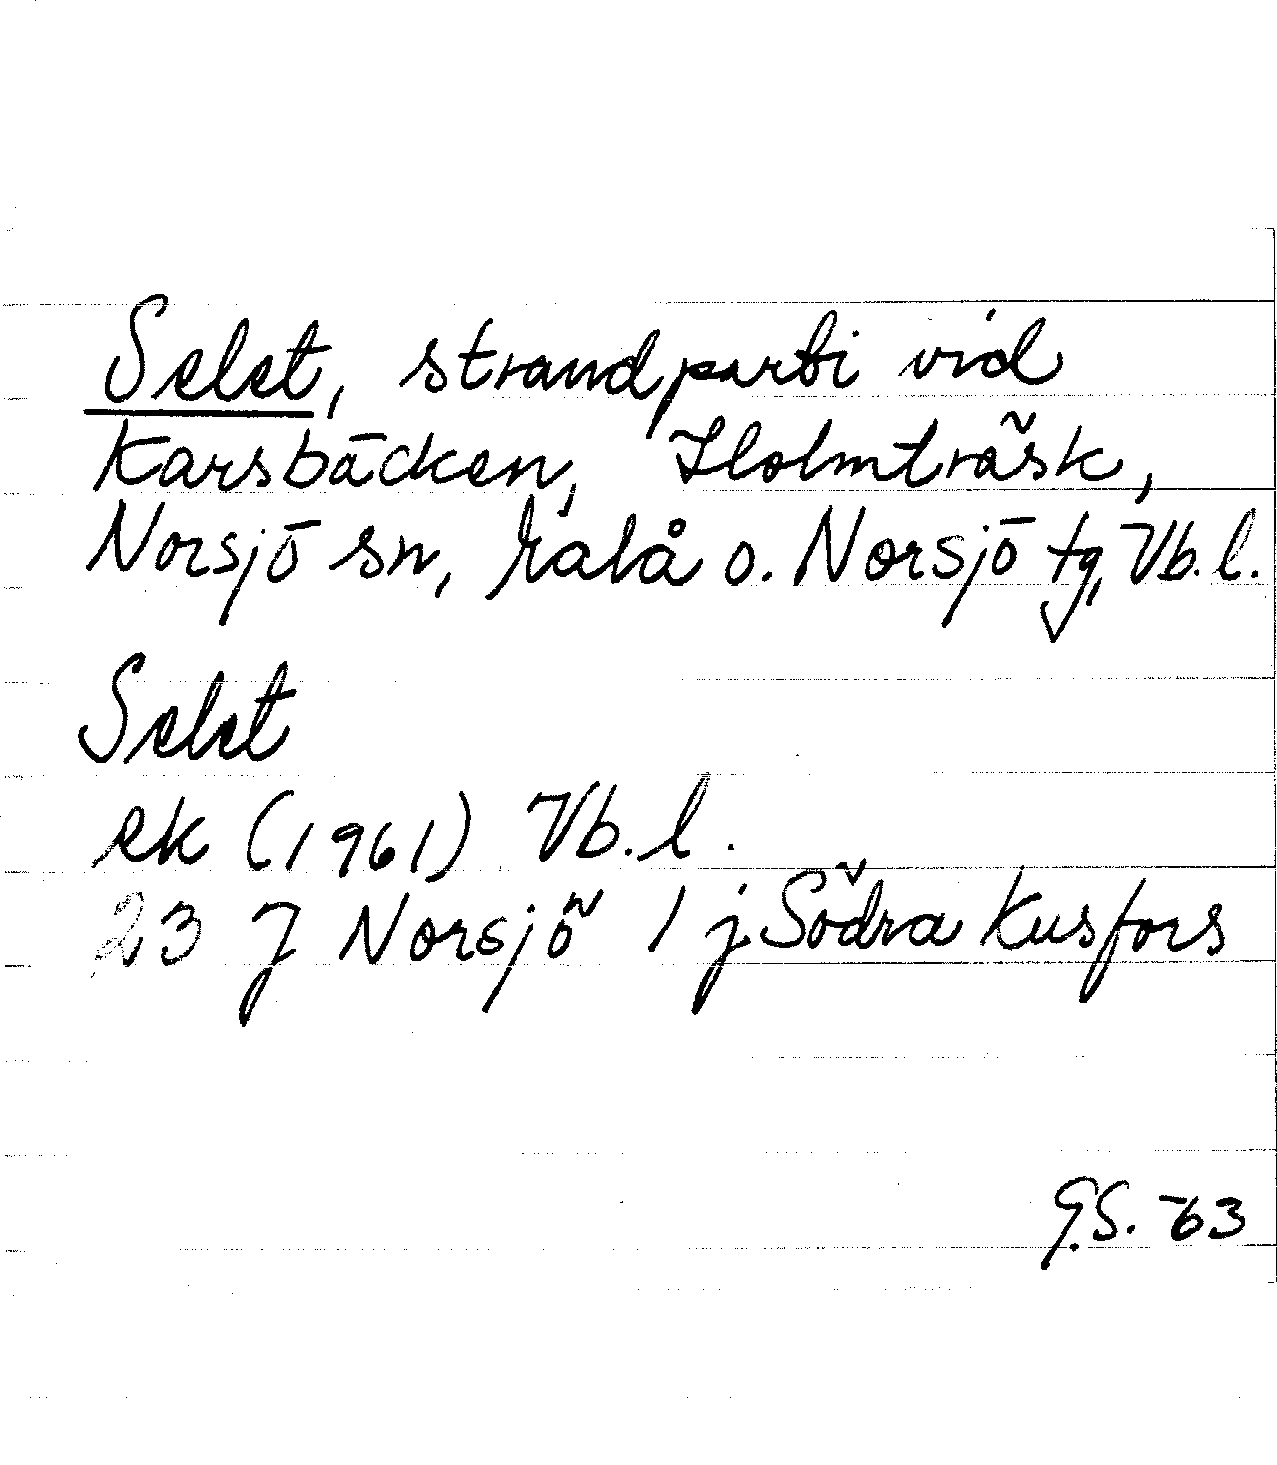 Selet, strandparti vid
Karsbäcken, Holmträsk,
Norsjö sn, Malå o. Norsjö tg, Vb. l.
Selet
ek (1961) Vb. l.
23 J Norsjö 1 j Södra Kusfors
G.S. -63